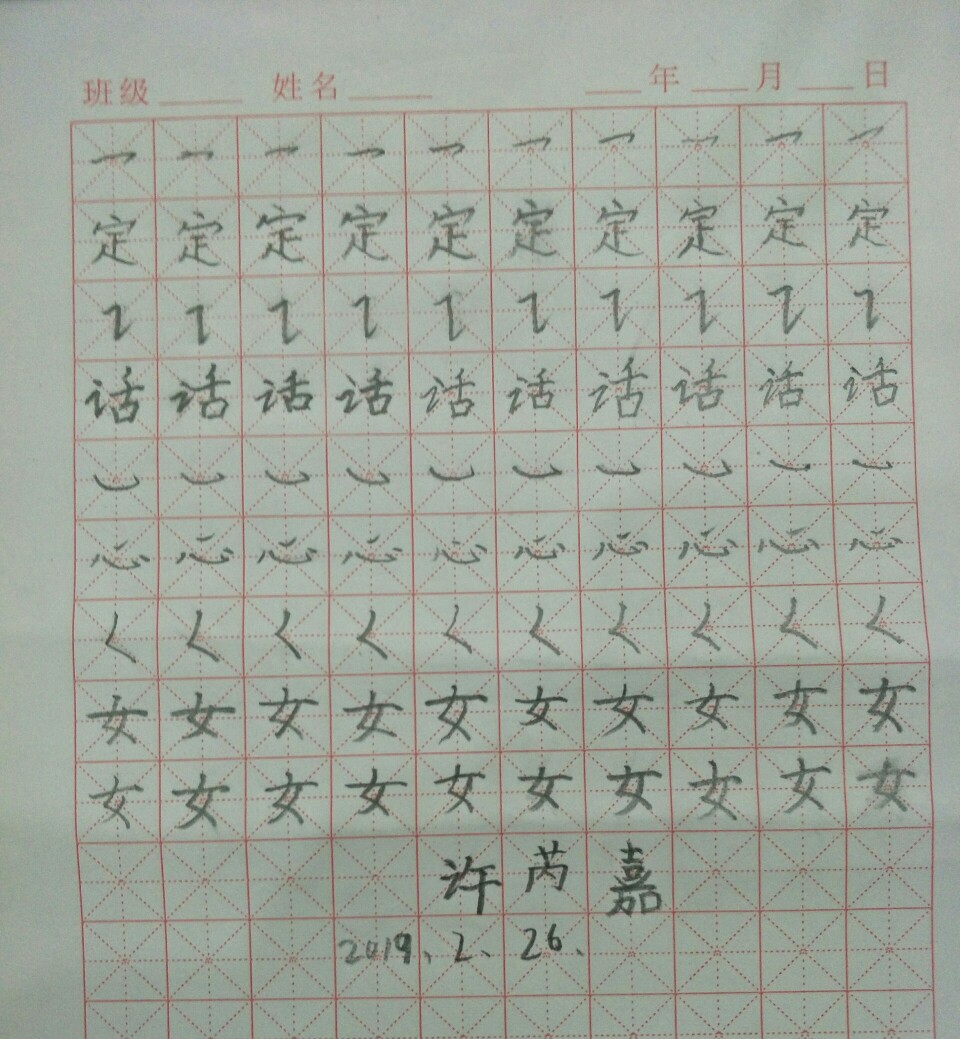 班级 姓名 年 月 日
㇖ ㇖ ㇖ ㇖ ㇖ ㇖ ㇖ ㇖ ㇖ ㇖
定 定 定 定 定 定 定 定 定 定
㇊ ㇊ ㇊ ㇊ ㇊ ㇊ ㇊ ㇊ ㇊ ㇊
话 话 话 话 话 话 话 话 话 话
㇃ ㇃ ㇃ ㇃ ㇃ ㇃ ㇃ ㇃ ㇃ ㇃
心 心 心 心 心 心 心 心 心 心
㇛ ㇛ ㇛ ㇛ ㇛ ㇛ ㇛ ㇛ ㇛ ㇛
女 女 女 女 女 女 女 女 女 女
女 女 女 女 女 女 女 女 女 女
许 芮 嘉
2019、2、26、